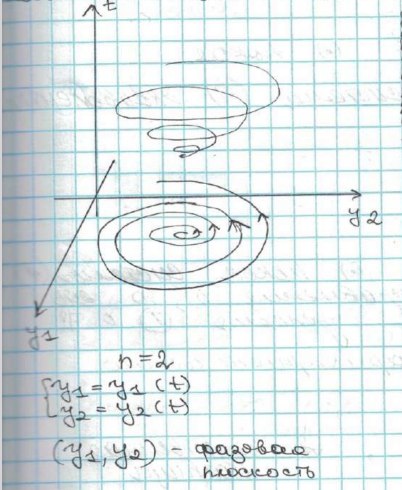 t
y2
y1
n=2
{y1 = y1 (t)
y2 = y2 (t)
(y1, y2) - фазовая
плоскость